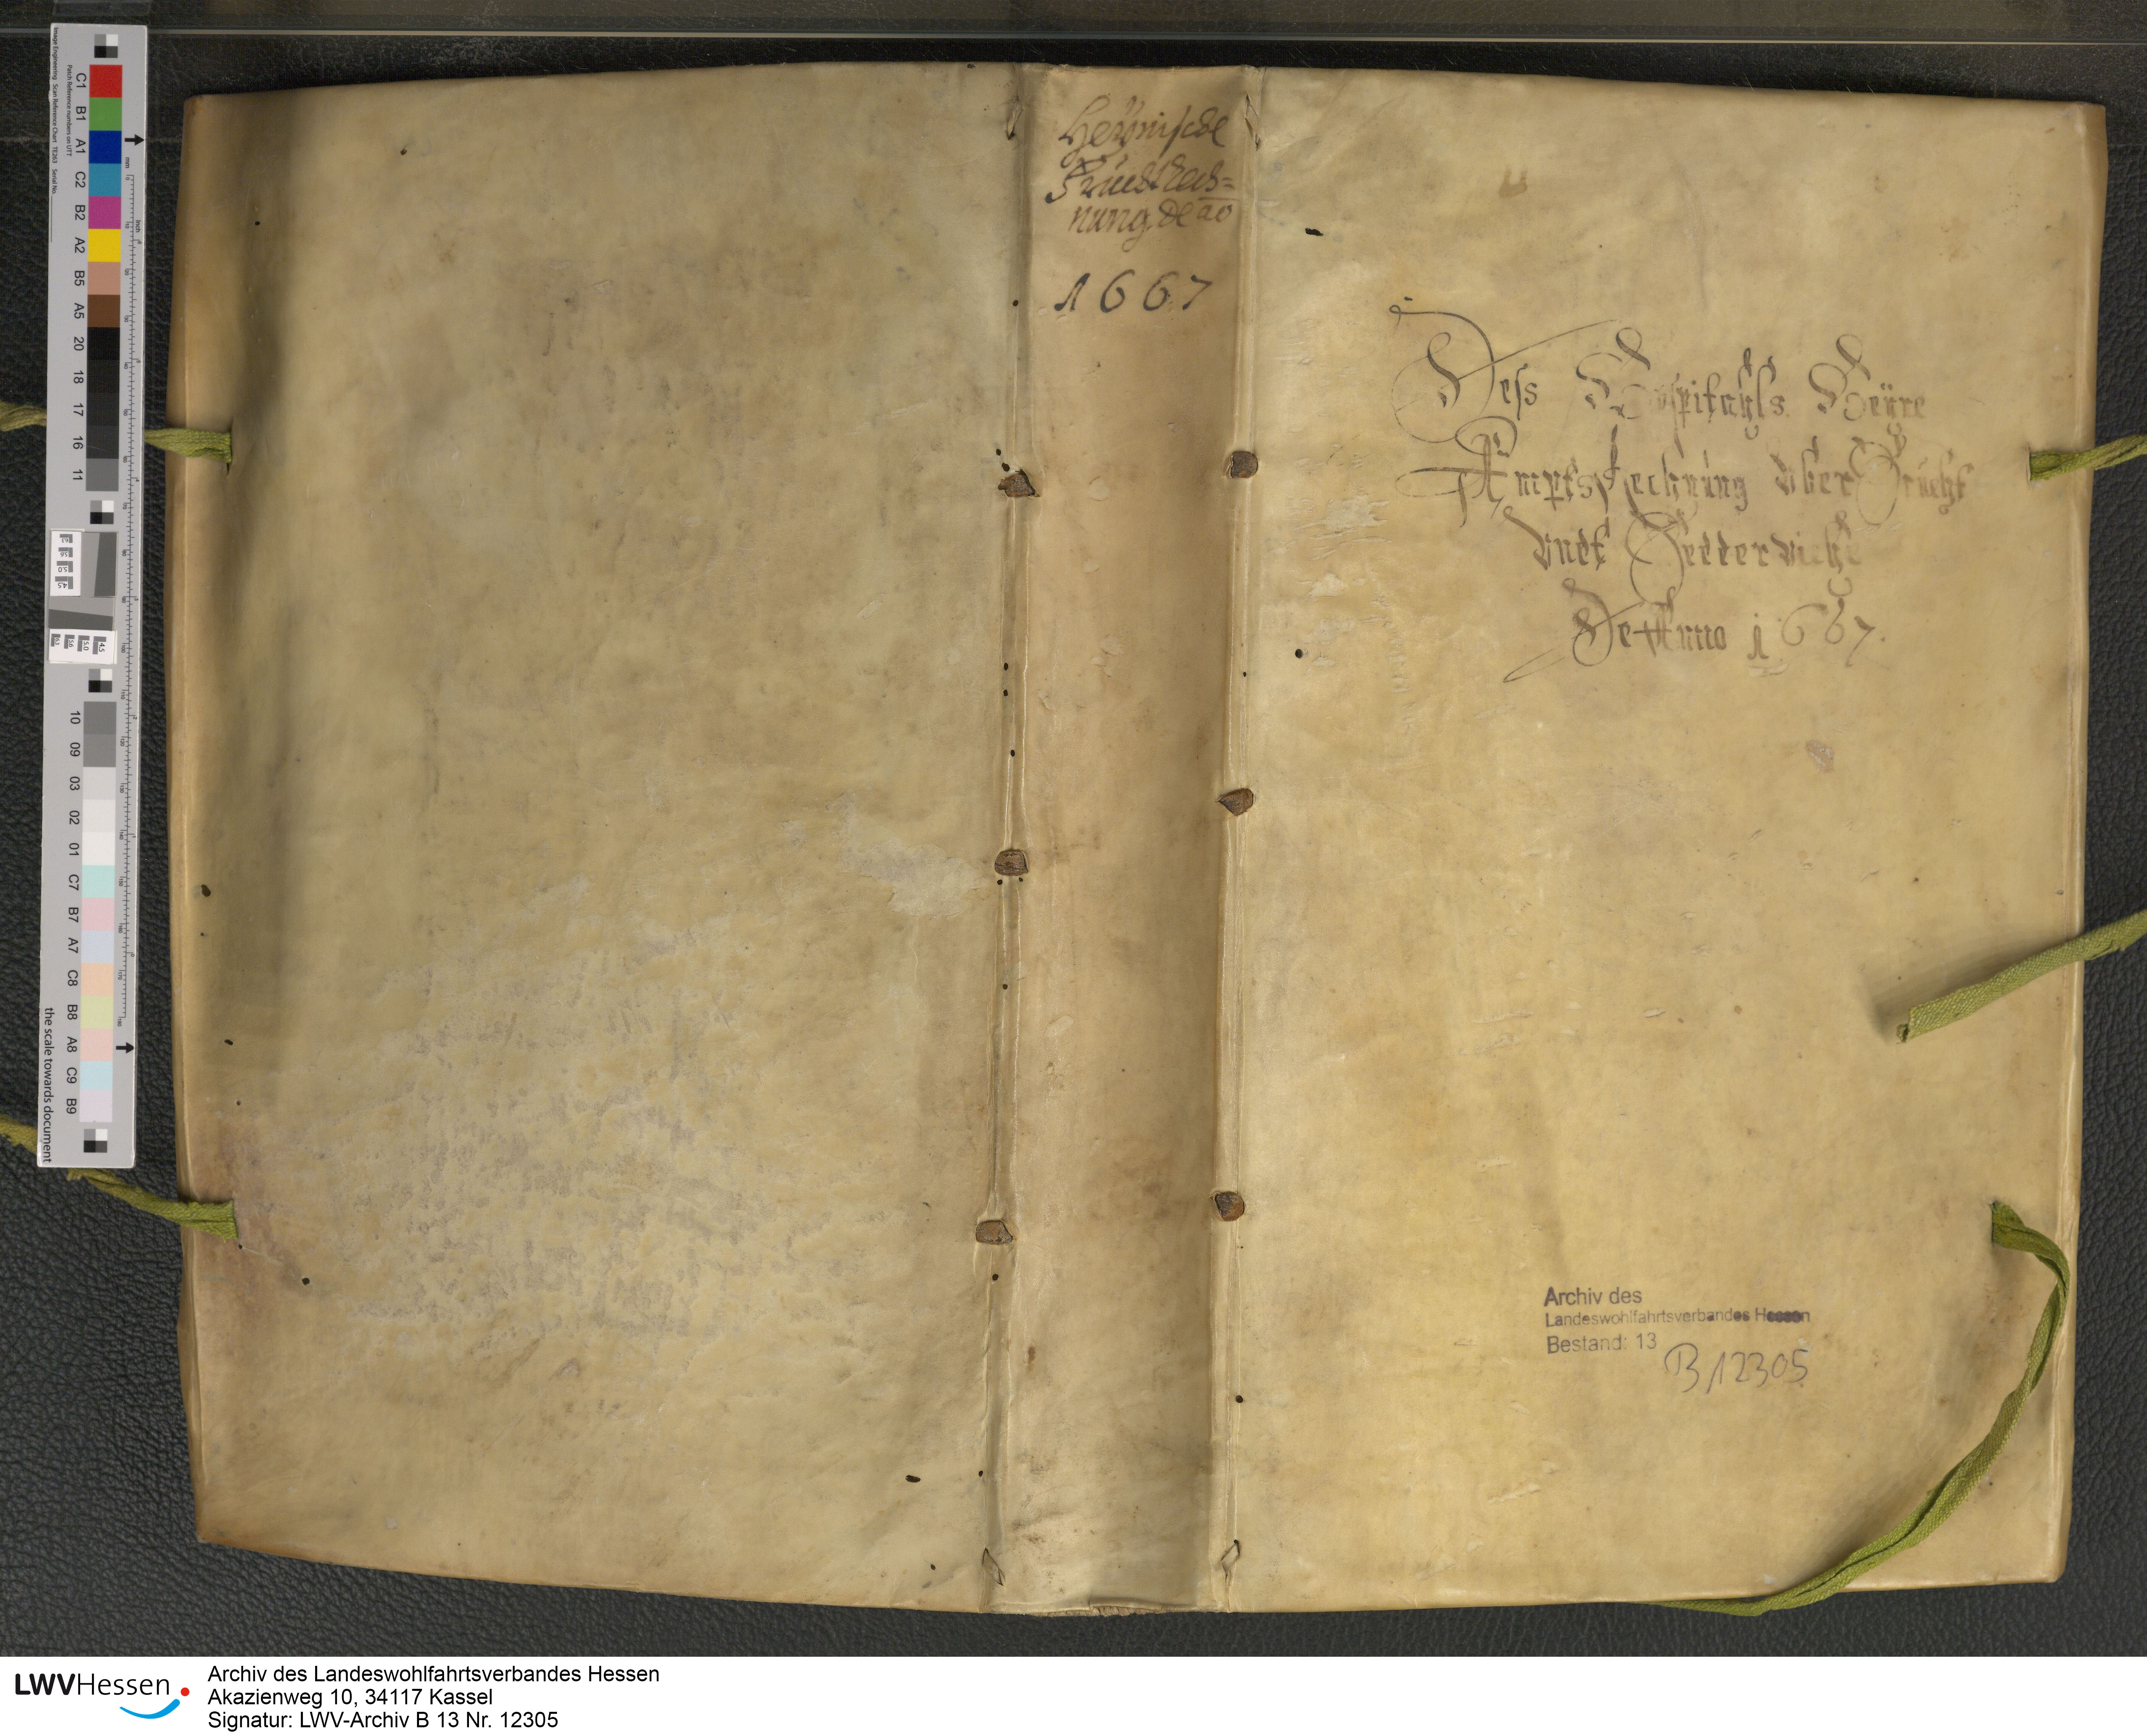 Heÿnische
Frücht Rech=
nung de ao
1667
Dess Hospitahls Heÿne
Ampts Rechnung Uber Frücht
Undt Federviche
De Anno 1667.
Archiv des
Landeswohlfahrtsverbandes Hessen
Bestand: 13
B 12305
C1 B1 A1 C2 B2 A2 B5 A5 20 18 17 16 11
10 09 03 02 01 C7 B7 A7 C8 B8 A8 C9 B9
the scale towards document
LWVHessen
Archiv des Landeswohlfahrtsverbandes Hessen
Akazienweg 10, 34117 Kassel
Signatur: LWV-Archiv B 13 Nr. 12305